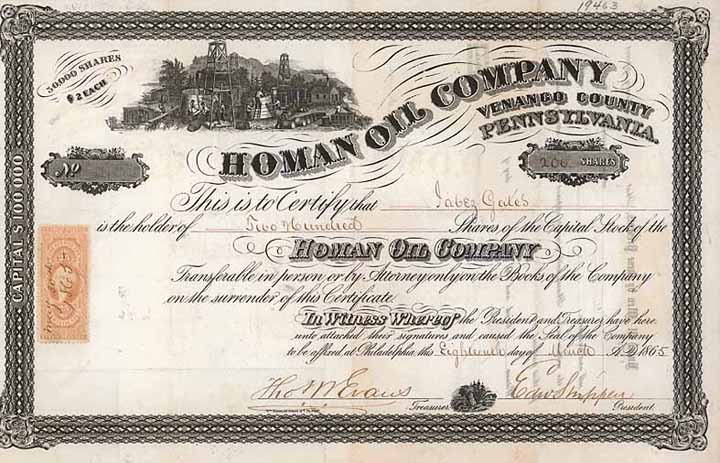 19463
50,000 SHARES
$2 EACH
HOMAN OIL COMPANY
VENANGO COUNTY
PENNSYLVANIA.
No
200 SHARES
This is to Certify that Jabez Gates
is the holder of Two Hundred Shares of the Capital Stock of the
HOMAN OIL COMPANY
Transferable in person or by Attorney only on the Books of the Company
on the surrender of this Certificate.
In Witness Whereof the President and Treasurer have here
unto attached their signatures and caused the Seal of the Company
to be affixed at Philadelphia, this Eighteenth day of March A.D. 1865
Tho M Evans
Treasurer
Edw Shippen
President.
CAPITAL $100 000